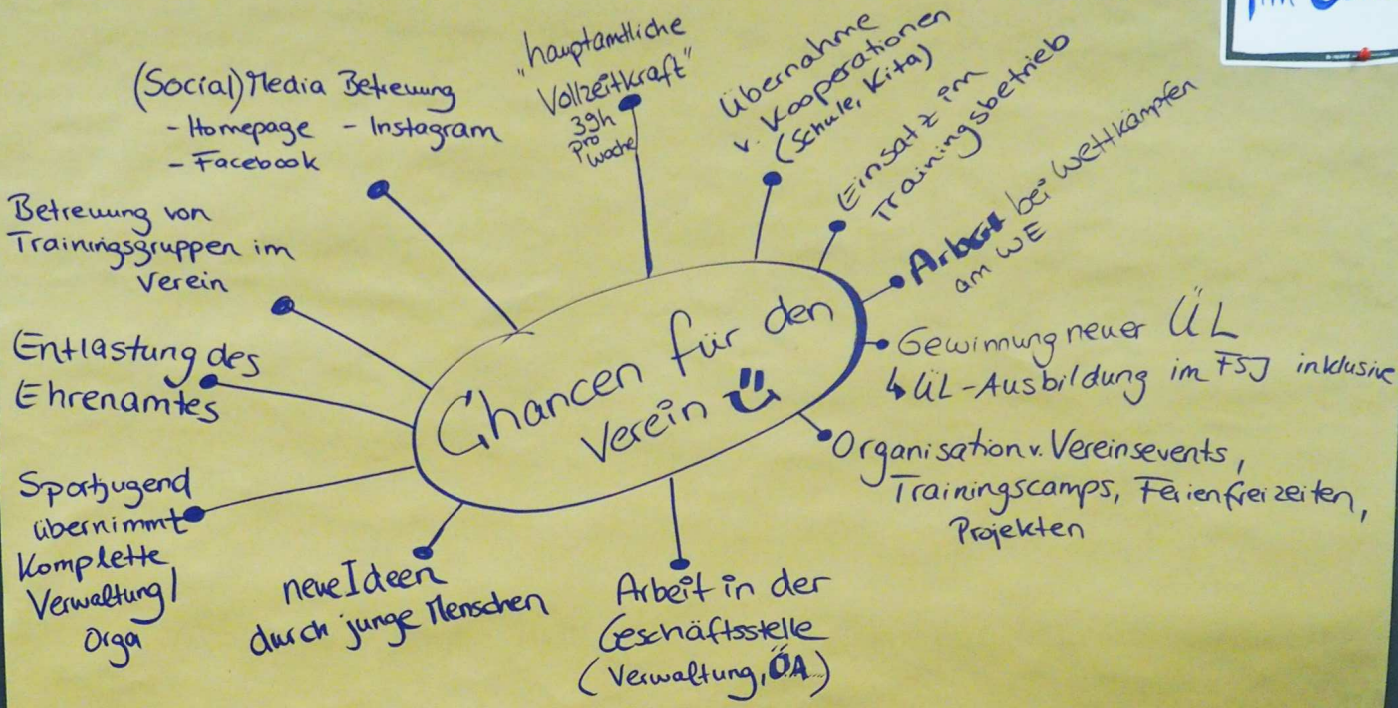 Chancen für den
Verein
(Social) Media Betreuung
- Homepage - Instagram
- Facebook
"hauptamtliche
Vollzeitkraft"
39h
pro
Woche
Übernahme
v. Kooperationen
(Schule, Kita)
Einsatz im
Trainingsbetrieb
Arbeit bei Wettkämpfen
am WE
Gewinnung neuer ÜL
↳ ÜL-Ausbildung im FSJ inklusive
Organisation v. Vereinsevents,
Trainingscamps, Ferienfreizeiten,
Projekten
Arbeit in der
Geschäftsstelle
(Verwaltung, ÖA)
neue Ideen
durch junge Menschen
Sportjugend
übernimmt
Komplette
Verwaltung/
Orga
Entlastung des
Ehrenamtes
Betreuung von
Trainingsgruppen im
Verein